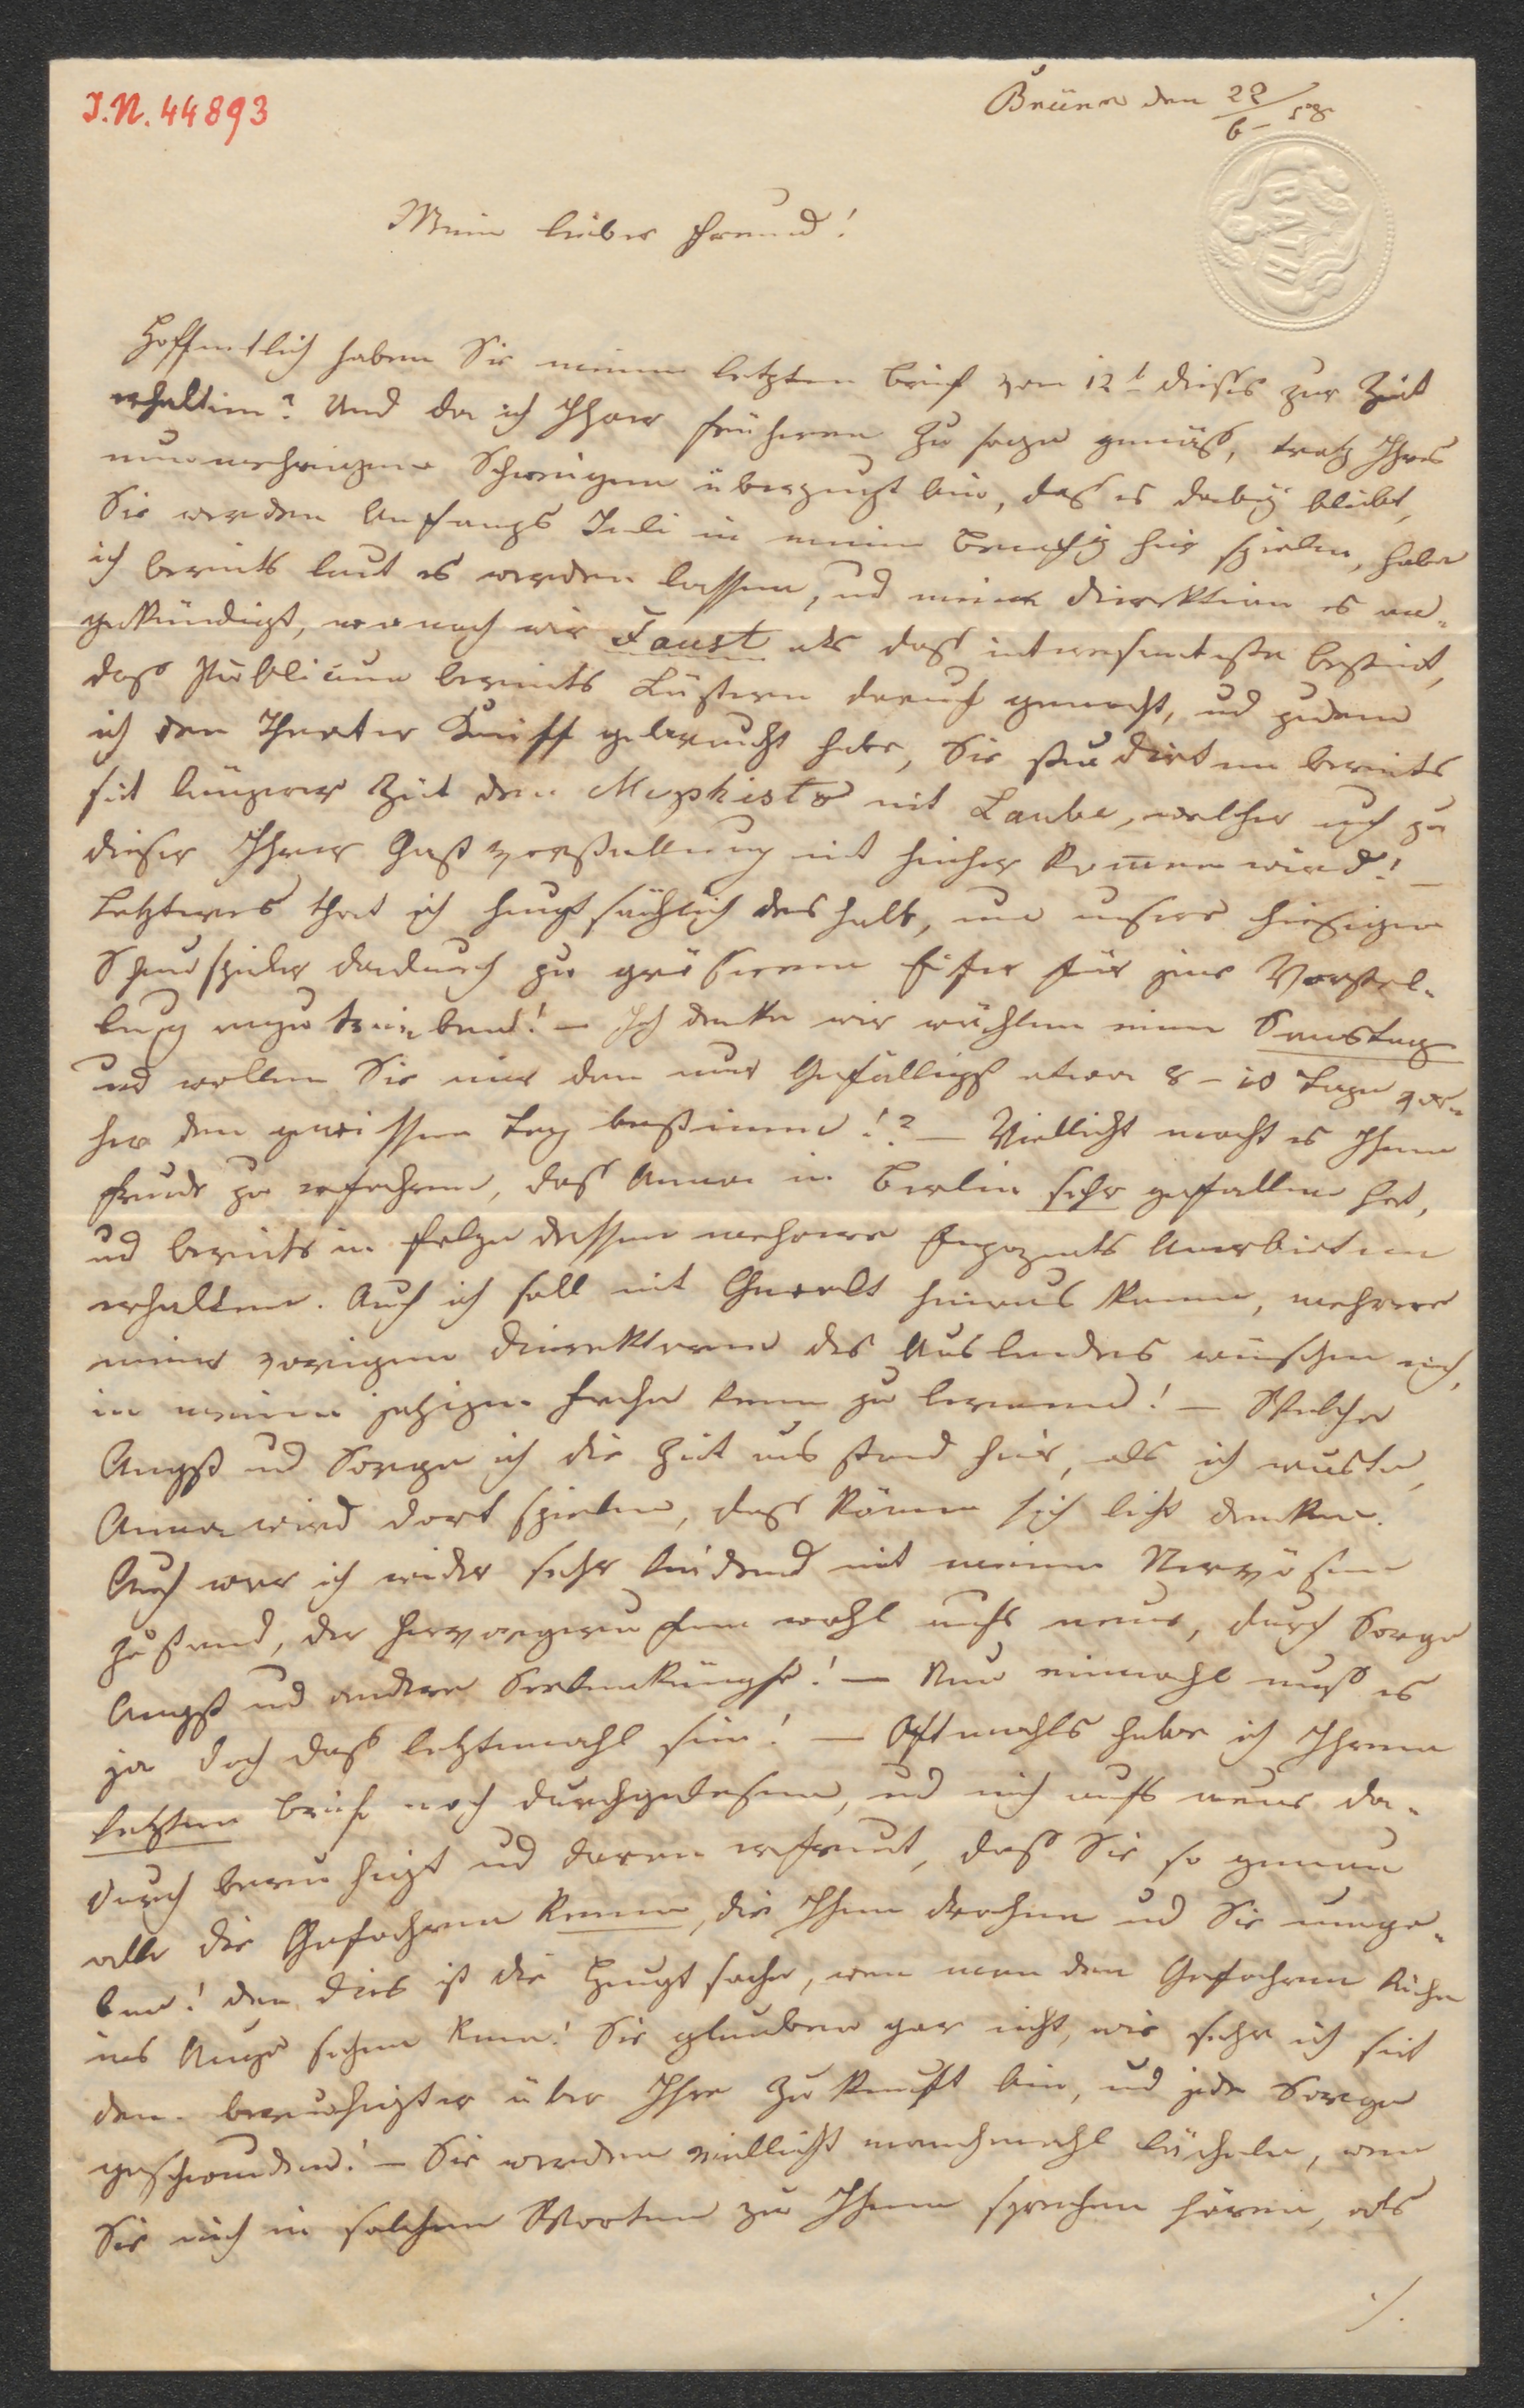 J.N. 44893
Brünn den 22/6 – 58
BATH
Mein lieber Freund!
Hoffentlich haben Sie meinen letzten Brief vom 12t dieses zur Zeit
erhalten? Und da ich Ihrer früheren Zusage gemäß, trotz Ihres
nunmehrigen Schweigens überzeugt bin, daß es dabei bleibt,
Sie werden Anfangs Juli in meinem Benefiz hier spielen, habe
ich bereits laut es werden lassen, und meine Direktion es an-
gekündigt, wonach wir Faust als daß interesanteste bestimt,
daß Publicum bereits Lüstern darauf gemacht, ud zudem
ich den Theater Kniff gebraucht habe, Sie studirten bereits
seit längerer Zeit den Mephisto mit Laube, welcher auch zu
dieser Ihrer Gastvorstellung mit hieher komen wird! –
Letzteres that ich hauptsächlich deshalb, um unsere hiesigen
Schauspieler dadurch zu größerem Eifer für jene Vorstel-
lung anzutreiben! – Ich denke wir wählen einen Samstag
ud wollen Sie mir den nur Gefälligst etwa 8 – 10 Tage vor-
her den gewissen Tag bestimmen!? – Vielleicht macht es Ihnen
Freude zu erfahren, daß Anna in Berlin sehr gefallen hat,
ud bereits in folge dessen mehrere Engagements Anerbieten
erhalten. Auch ich soll mit Gewalt hinaus kommen, mehrere
meiner vorigen Direktoren des Auslandes wünschen mich,
in meinem jetzigen Fache kennen zu lernen! – Welche
Angst ud Sorge ich die Zeit aus stand hier, als ich wußte,
Anna wird dort spielen, daß könen sich leicht denken.
Auch war ich wieder sehr leidend mit meinem Nervösen
Zustand, der hervorgerufen wohl aufs neue, durch Sorge
Angst ud andere Seelenkämpfe! – Nun einmahl muß es
ja doch daß letztemahl sein! – Oftmahls habe ich Ihren
letzten Brief noch durchgelesen, ud mich aufs neue da-
durch beruhigt ud daran erfreut, daß Sie so genau
alle die Gefahren kennen, die Ihnen drohen ud Sie umge-
ben! den dies ist die Hauptsache, wen man den Gefahren kühn
ins Auge sehen kan! Sie glauben gar nicht, wie sehr ich seit
dem beruhigter über Ihre Zukunft bin, ud jede Sorge
geschwunden! – Sie werden vielleicht manchmahl lächeln, wen
Sie mich in solchen Worten zu Ihnen sprechen hören, als
./.